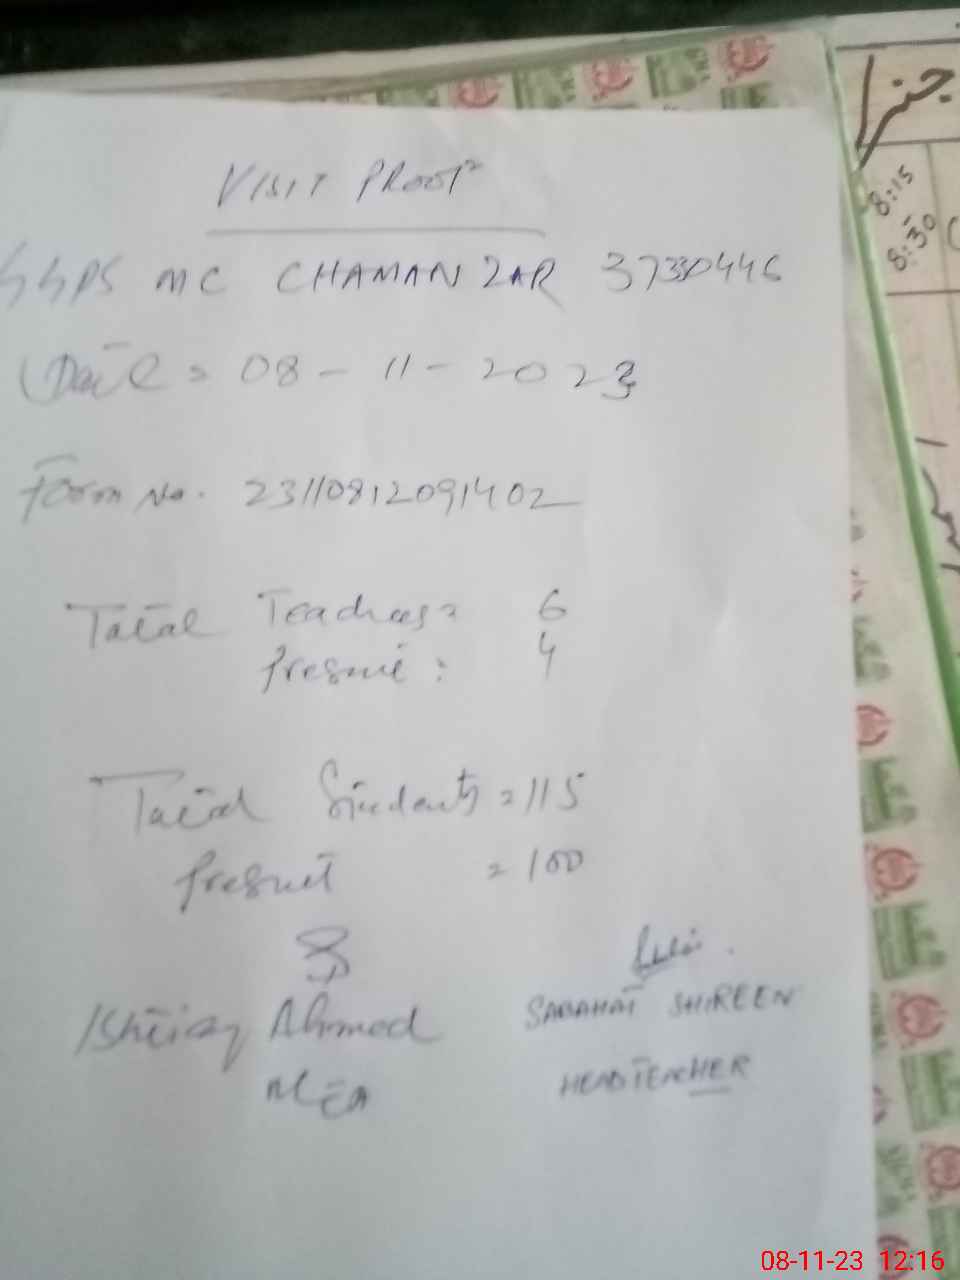 VISIT PROOF
GGPS MC CHAMAN ZAR 37330446
Date = 08 - 11 - 2023
Form No. 23110812091402
Total Teachers = 6
Present : 4
Total Students = 115
Present = 100
Ishtiaq Ahmed
MEA
SABAHAT SHIREEN
HEADTEACHER
8:15
8:30
08-11-23 12:16